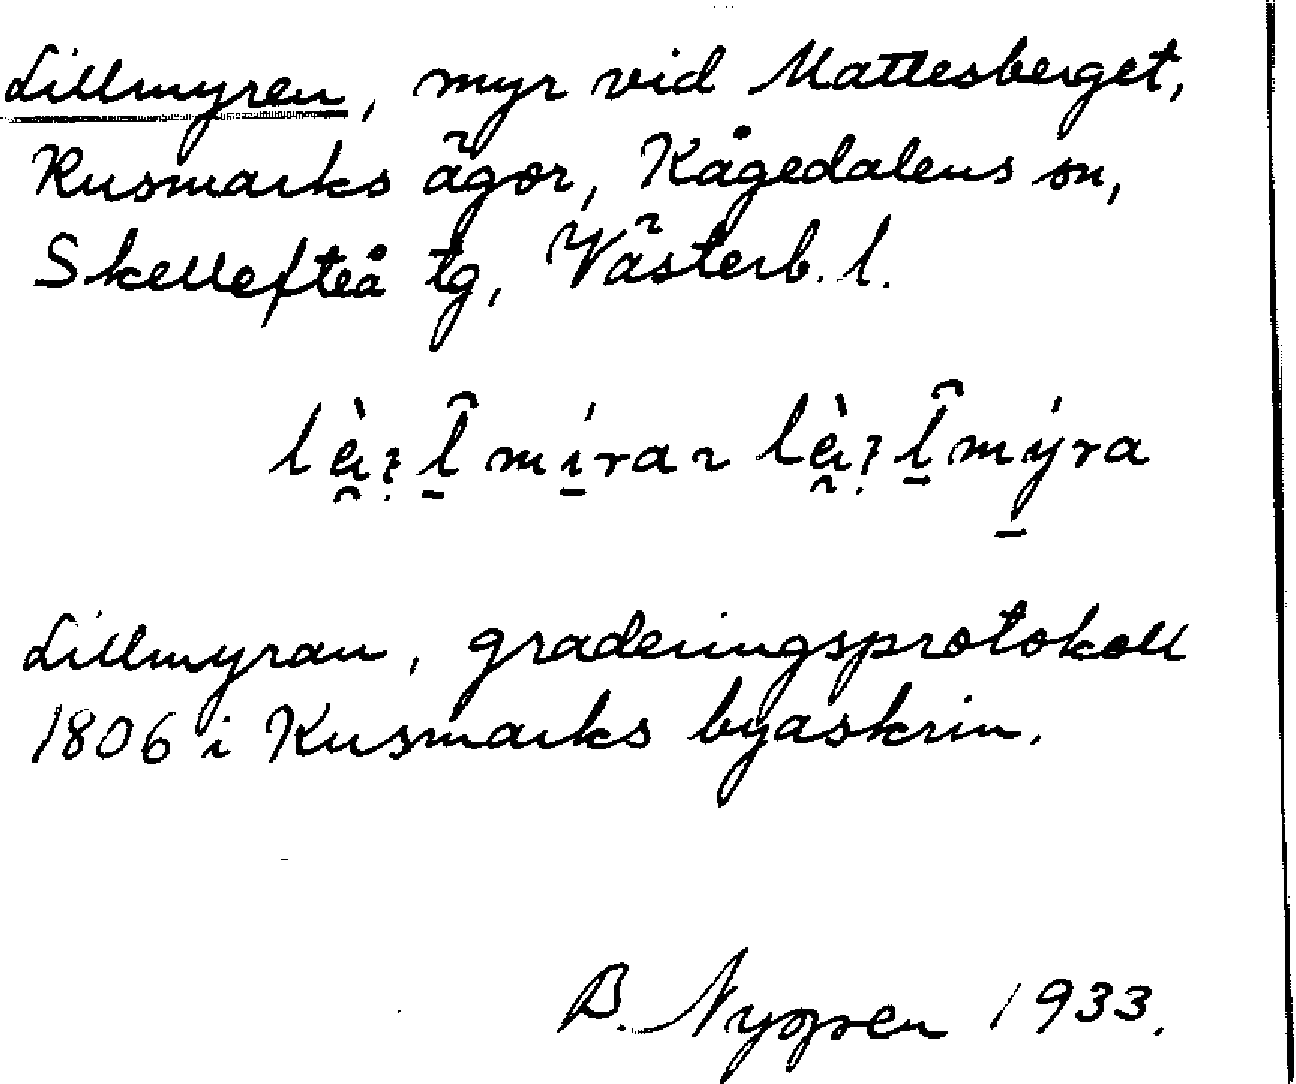 Lillmyren, myr vid Mattesberget,
Kusmarks ägor, Kågedalens sn,
Skellefteå tg, Västerb. l.
Lillmyran, graderingsprotokoll
1806 i Kusmarks byaskrin.
B. Nygren 1933.